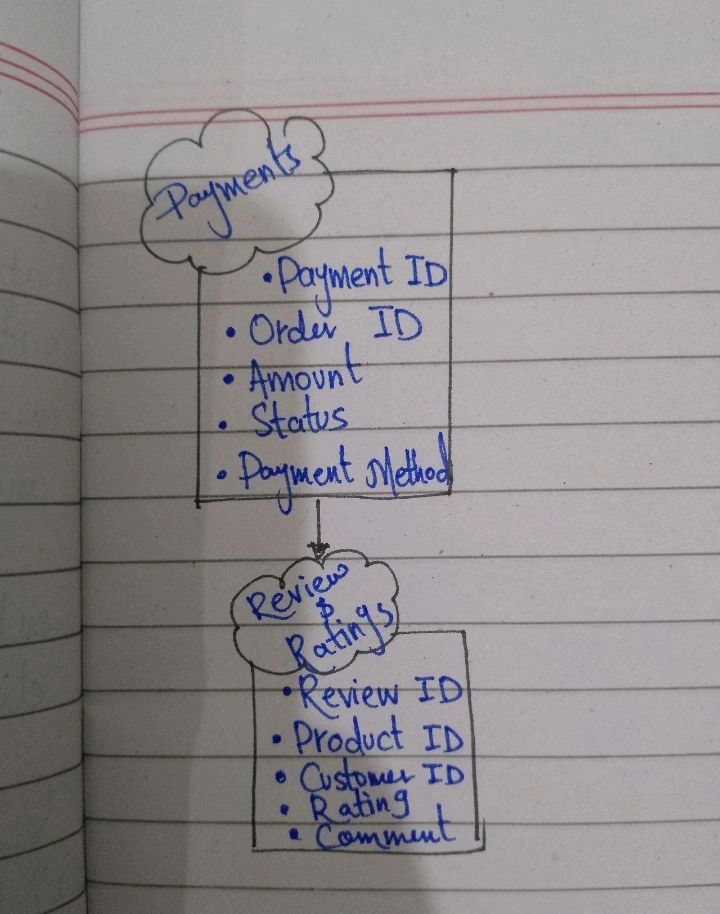 Payments
• Payment ID
• Order ID
• Amount
• Status
• Payment Method
Review
&
Ratings
• Review ID
• Product ID
• Customer ID
• Rating
• Comment